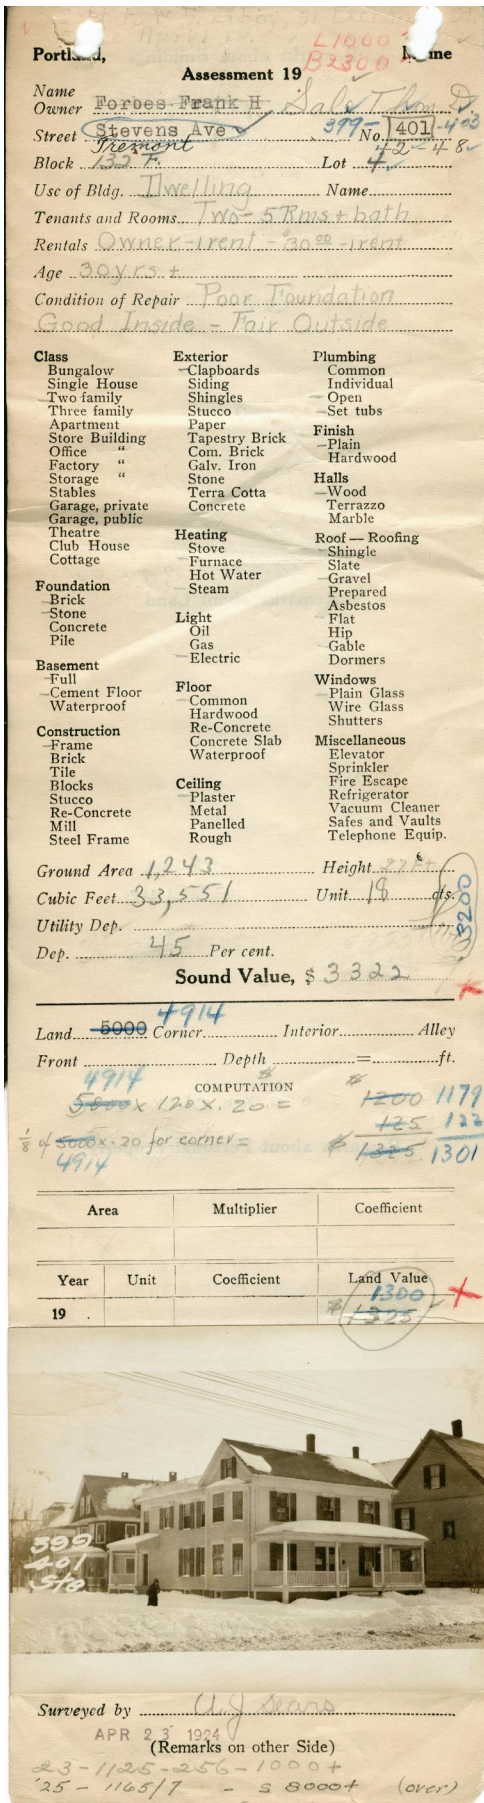 L1000
Portland, Maine
B2300
Assessment 19
Name
Owner Forbes Frank H Sale Thom. D.
Street Stevens Ave 399- No. 401-403
Tremont 42-48
Block 132 F. Lot 4
Use of Bldg. Dwelling Name
Tenants and Rooms Two-5 Rms + bath
Rentals Owner-1rent-$30.00-1rent
Age 30 yrs +
Condition of Repair Poor Foundation
Good Inside - Fair Outside
Class
Bungalow
Single House
Two family
Three family
Apartment
Store Building
Office "
Factory "
Storage "
Stables
Garage, private
Garage, public
Theatre
Club House
Cottage
Foundation
Brick
Stone
Concrete
Pile
Basement
Full
Cement Floor
Waterproof
Construction
Frame
Brick
Tile
Blocks
Stucco
Re-Concrete
Mill
Steel Frame
Exterior
Clapboards
Siding
Shingles
Stucco
Paper
Tapestry Brick
Com. Brick
Galv. Iron
Stone
Terra Cotta
Concrete
Heating
Stove
Furnace
Hot Water
Steam
Light
Oil
Gas
Electric
Floor
Common
Hardwood
Re-Concrete
Concrete Slab
Waterproof
Ceiling
Plaster
Metal
Panelled
Rough
Plumbing
Common
Individual
Open
Set tubs
Finish
Plain
Hardwood
Halls
Wood
Terrazzo
Marble
Roof — Roofing
Shingle
Slate
Gravel
Prepared
Asbestos
Flat
Hip
Gable
Dormers
Windows
Plain Glass
Wire Glass
Shutters
Miscellaneous
Elevator
Sprinkler
Fire Escape
Refrigerator
Vacuum Cleaner
Safes and Vaults
Telephone Equip.
Ground Area 1,243 Height 27 Ft
Cubic Feet 33,551 Unit 18 cts.
3200
Utility Dep.
Dep. 45 Per cent.
Sound Value, $ 3322
4914
Land 5000 Corner Interior Alley
Front Depth = ft.
COMPUTATION
4914
5000 x 120 x .20 = $1200 1179
125 122
1/8 of 5000 x .20 for corner = $1325 1301
4914
Area Multiplier Coefficient
Year Unit Coefficient Land Value
1300
19 $1325
399
401
Ste
Surveyed by A. J. Sears
APR 23 1924
(Remarks on other Side)
23-1125-256-1000+
'25 - 1165/7 - S 8000+ (over)